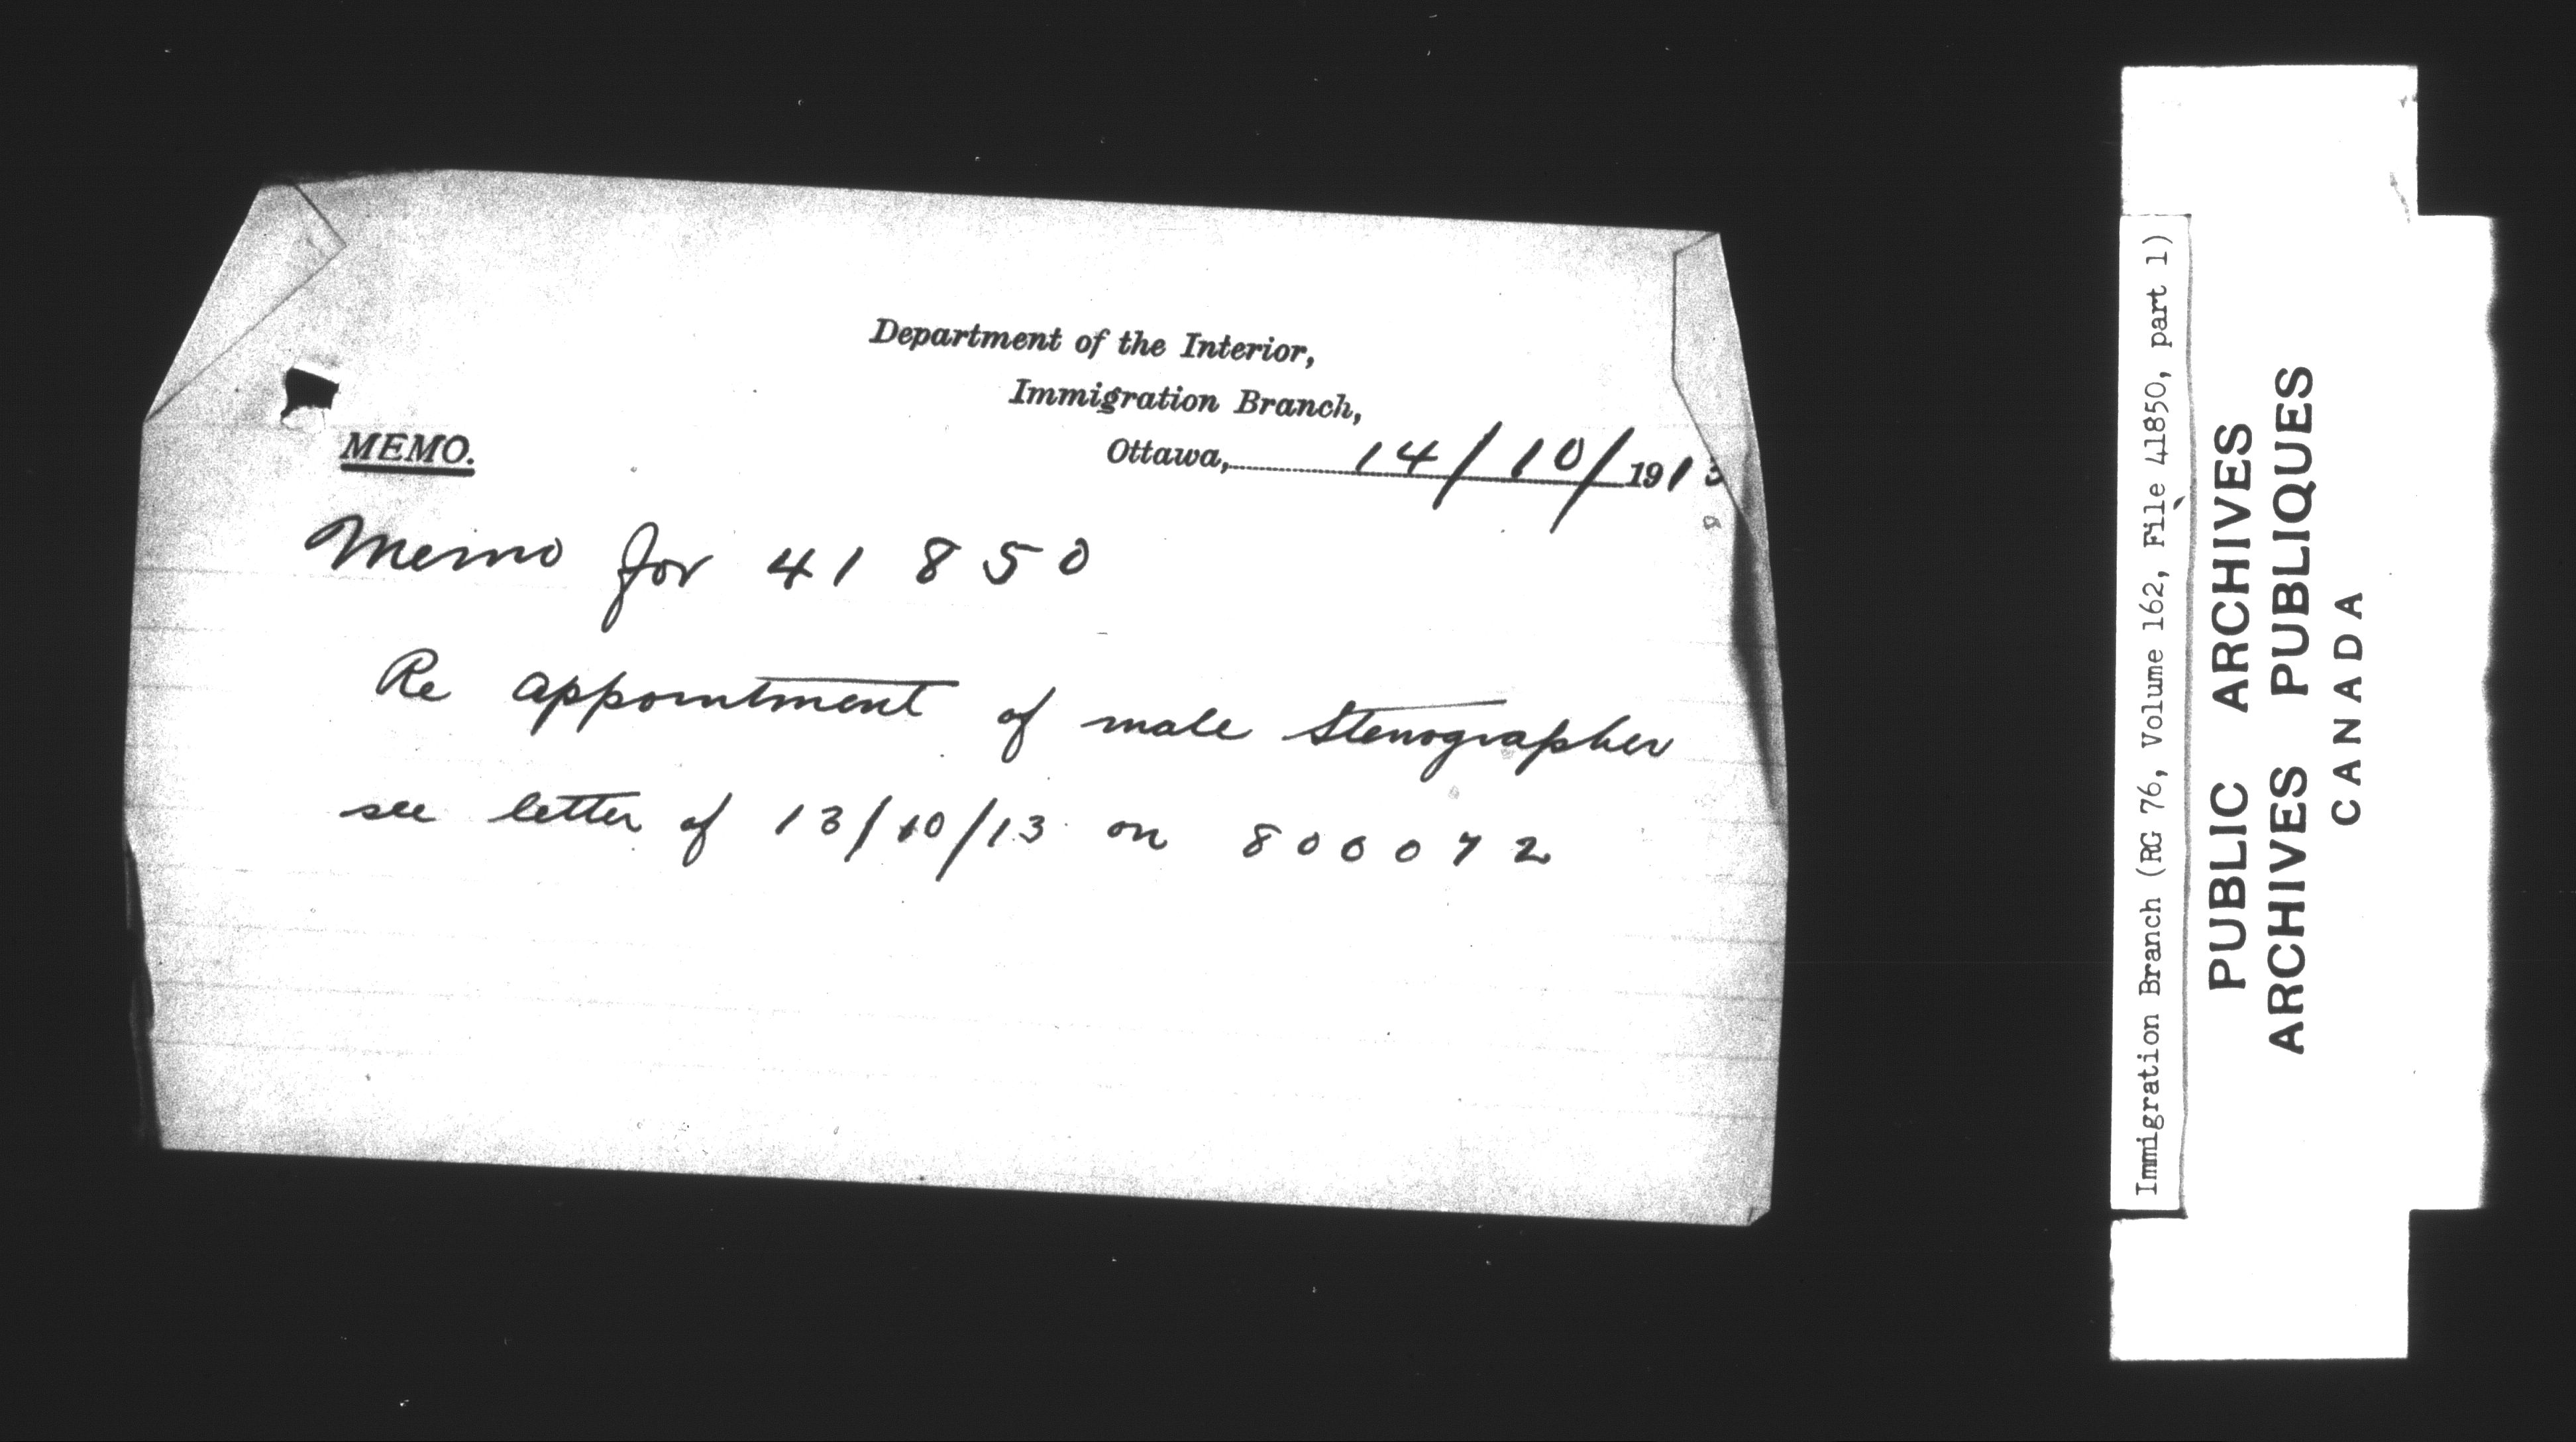 Department of the Interior,
Immigration Branch,
Ottawa, 14/10/1913
MEMO.
Memo for 41850
Re appointment of male Stenographer
see letter of 13/10/13 on 800072
Immigration Branch (RG 76, Volume 162, File 41850, part 1)
PUBLIC ARCHIVES
ARCHIVES PUBLIQUES
CANADA